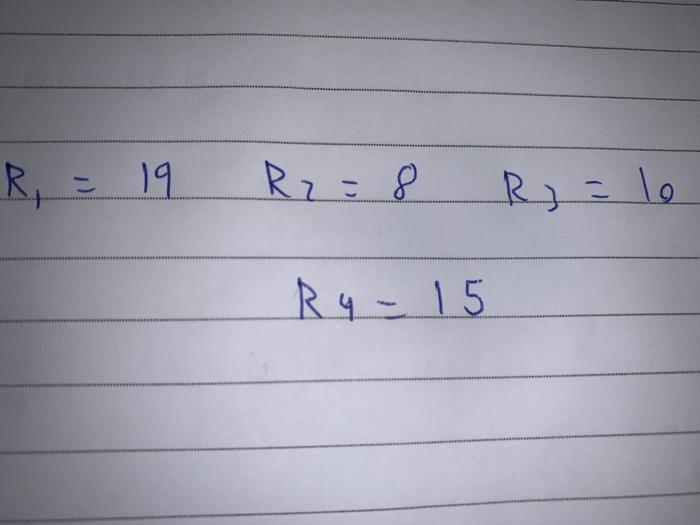 R₁ = 19 R₂ = 8 R₃ = 10
R₄ = 15